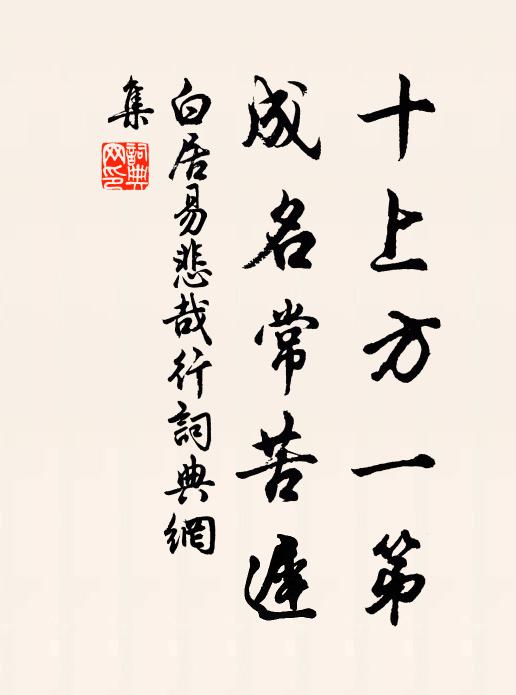 十上方一第
成名常苦遲
白居易悲哉行詞典網
集
詞典
网印